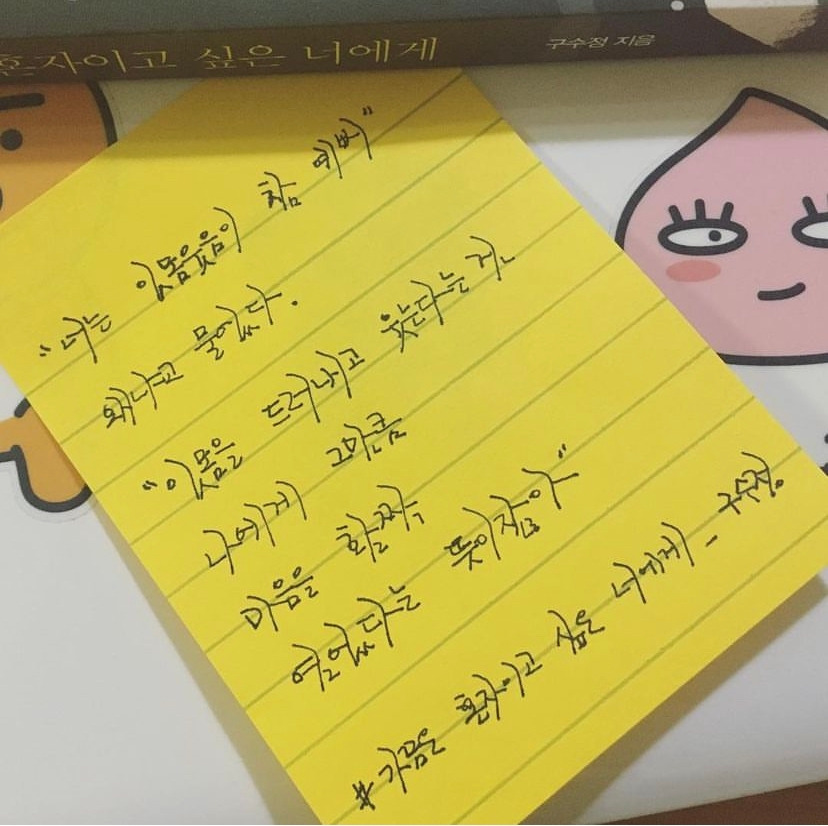 혼자이고 싶은 너에게
구수정 지음
"너는 잇몸웃음이 참 예뻐"
왜냐고 물었다.
"잇몸을 드러내고 웃는다는 건,
나에게 그만큼
마음을 활짝
열었다는 뜻이잖아"
#가끔은 혼자이고 싶은 너에게 - 구수정.